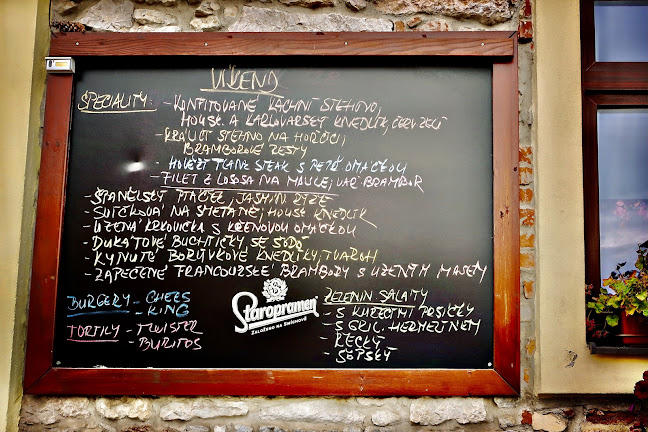 VÍKEND
SPECIALITY: - KONFITOVANÉ KACHNÍ STEHNO,
HOUSK. A KARLOVARSKÝ KNEDLÍK, ČERV. ZELÍ
- KRÁLIČÍ STEHNO NA HOŘČICI,
BRAMBOROVÉ ROSTY
- HOVĚZÍ FLANK STEAK S PEPŘ. OMÁČKOU
- FILET Z LOSOSA NA MÁSLE, VAŘ. BRAMBOR
- ŠPANĚLSKÝ PTÁČEK, JASMÍN. RÝŽE
- SVÍČKOVÁ NA SMETANĚ, HOUSK. KNEDLÍK
- UZENÁ KRKOVIČKA S KŘENOVOU OMÁČKOU
- DUKÁTOVÉ BUCHTIČKY SE ŠODÓ
- KYNUTÉ BORŮVKOVÉ KNEDLÍKY, TVAROH
- ZAPEČENÉ FRANCOUZSKÉ BRAMBORY S UZENÝM MASEM
BURGERY - CHEES
- KING
TORTILY - TWISTER
- BURITOS
Staropramen
ZALOŽENO NA SMÍCHOVĚ
ZELENIN. SALÁTY
- S KUŘECÍMI NOSIČKY
- S GRIL. HERMELÍNEM
- ŘECKÝ
- ŠOPSKÝ